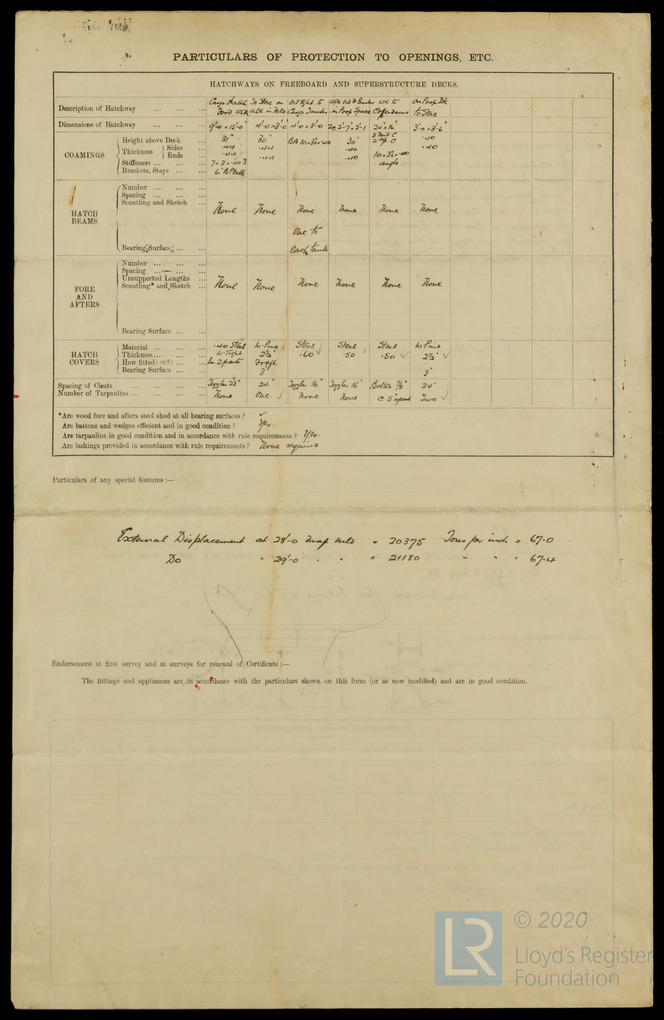 PARTICULARS OF PROTECTION TO OPENINGS, ETC.
HATCHWAYS ON FREEBOARD AND SUPERSTRUCTURE DECKS.
Description of Hatchway ... ... ... Cargo Hatch To Store on Oil tight to to On Poop Dk
Ford in Cargo Tanks in Poop Space Cofferdams to Store
Dimensions of Hatchway ... ... ... 4'-0 × 3'-0 4'-0 × 3'-0 3'-0 × 3'-6"
COAMINGS
Height above Deck ... 31" 30" 30"
Thickness { Sides ... .44 .44 .40 .40
Ends ... .44 .44 .40
Stiffeners ... ... ... angle
Brackets, Stays ... ...
HATCH BEAMS
Number ... ... ...
Spacing ... ... ...
Scantling and Sketch ... None None None None None None
Due to
Bearing Surface ... ... tank
FORE AND AFTERS
Number ... ... ...
Spacing ... ... ...
Unsupported Lengths ...
Scantling* and Sketch ... None None None None None None
Bearing Surface ... ...
HATCH COVERS
Material ... ... ... .40 Steel W. Pine Steel Steel Steel W. Pine
Thickness ... ... W. Tight 2½" .60 .50 .50 2½"
How fitted ... In 2 parts
Bearing Surface ... ... 3" 3"
Spacing of Cleats ... ... ... Toggles 28" 24" Toggles 16" Toggles 15" Bolts 7/8" 24"
Number of Tarpaulins ... ... ... None One None None @ 5" apart Two
*Are wood fore and afters steel shod at all bearing surfaces? ✓
Are battens and wedges efficient and in good condition? Yes.
Are tarpaulins in good condition and in accordance with rule requirements? Yes.
Are lashings provided in accordance with rule requirements? None required
Particulars of any special features:—
External Displacement at 28'-0 = 20375 Tons per inch = 67.0
Do " 29'-0 " " = 21180 " " " 67.4
Endorsement at first survey and at surveys for renewal of Certificate:—
The fittings and appliances are in accordance with the particulars shown on this form (or as now modified) and are in good condition.
LR
© 2020
Lloyd's Register
Foundation